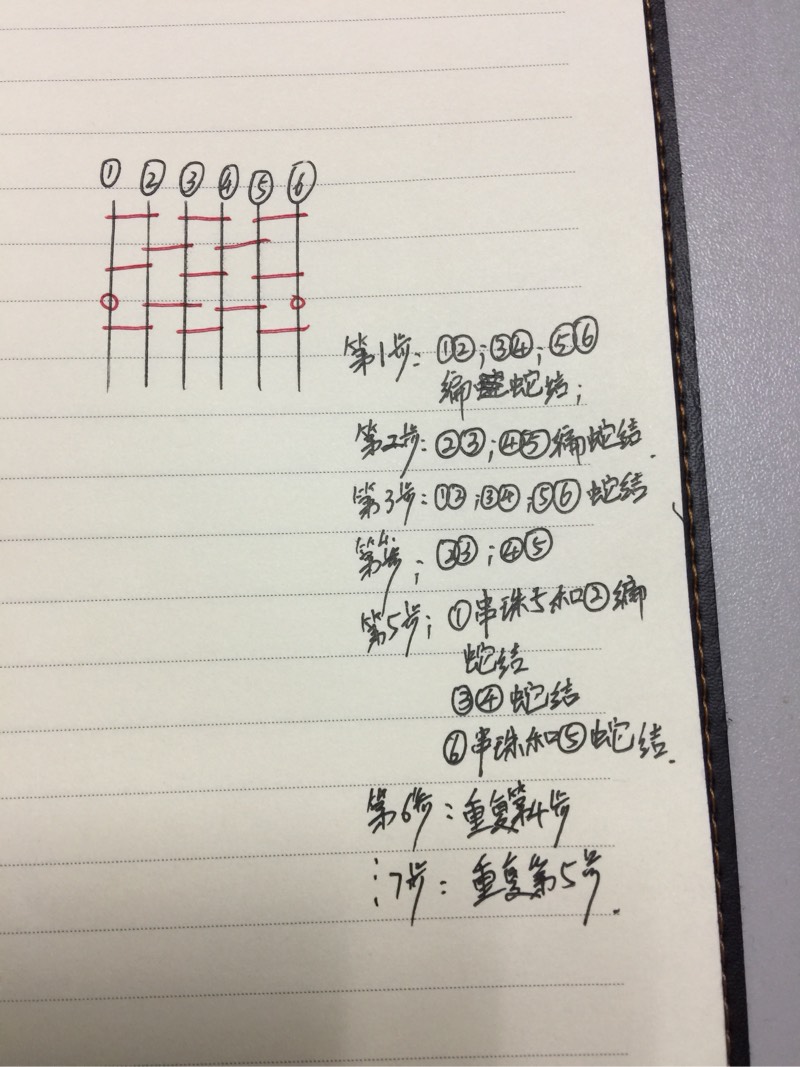 ① ② ③ ④ ⑤ ⑥
第1步：①②；③④；⑤⑥
编蛇结；
第2步：②③；④⑤编蛇结.
第3步：①②；③④；⑤⑥蛇结
第4步；②③；④⑤
第5步；①串珠子和②编
蛇结
③④蛇结
⑥串珠和⑤蛇结.
第6步：重复第4步
⋮7步：重复第5步.